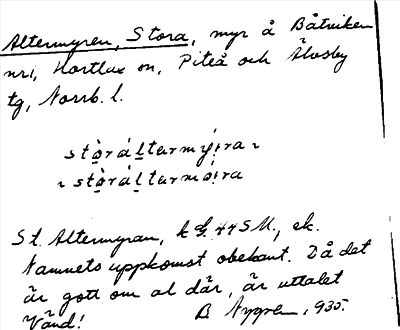 Altermyren, Stora, myr å Båtviken
nri, Hortlax sn, Piteå och Älvsby
tg, Norrb. l.
stòràltermý:ra ~
~ stòràltermø:ra
St. Altermyran, k bl. 44 SM., ek.
Namnets uppkomst obekant. Då det
är gott om al där, är uttalet
Vänd! B Nygren, 1935.